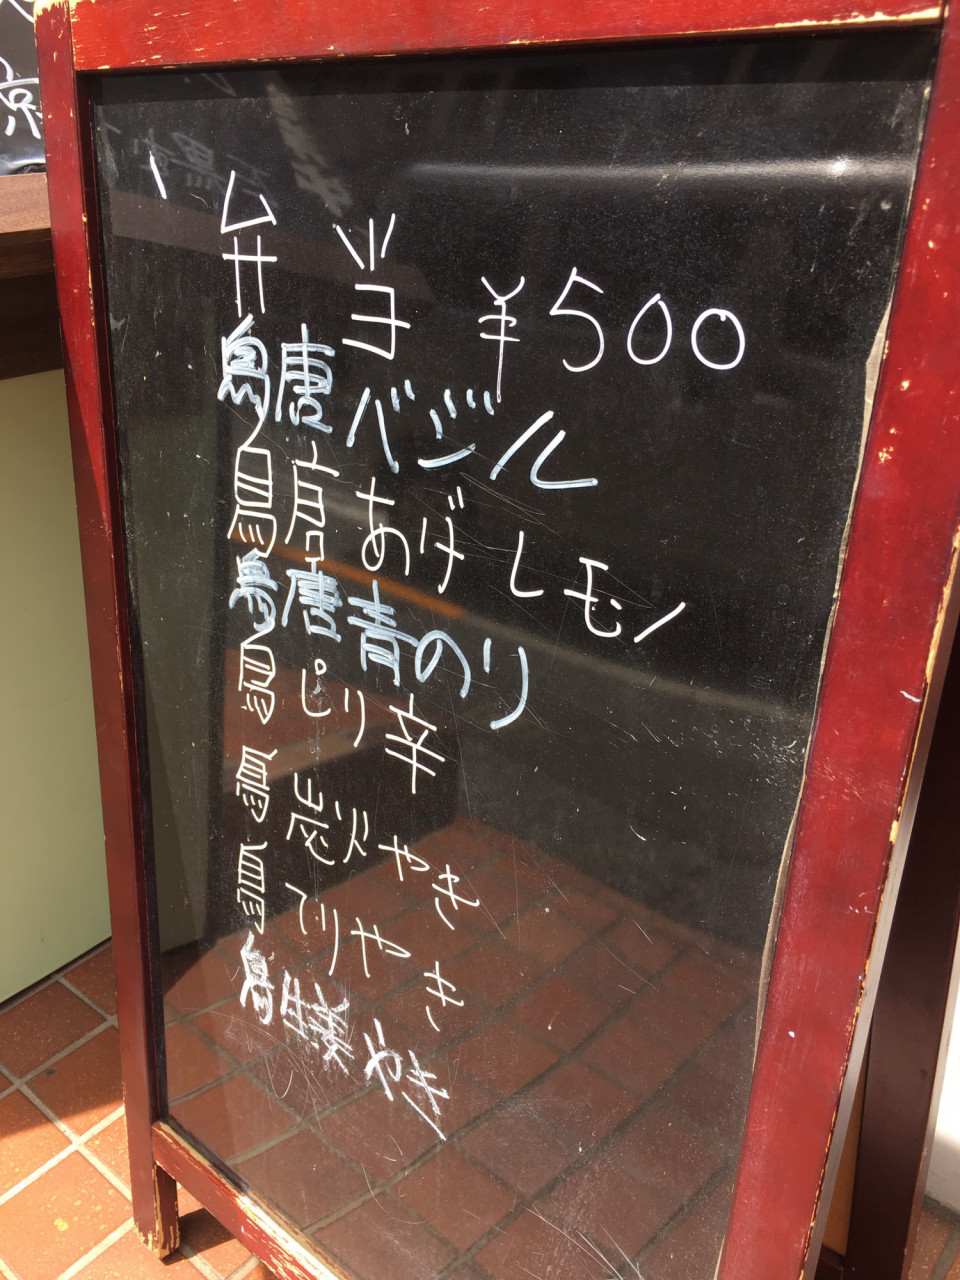 弁当 ¥500
鳥唐バジル
鳥唐あげレモン
鳥唐青のり
鳥ピリ辛
鳥炭やき
鳥てりやき
鳥生姜やき